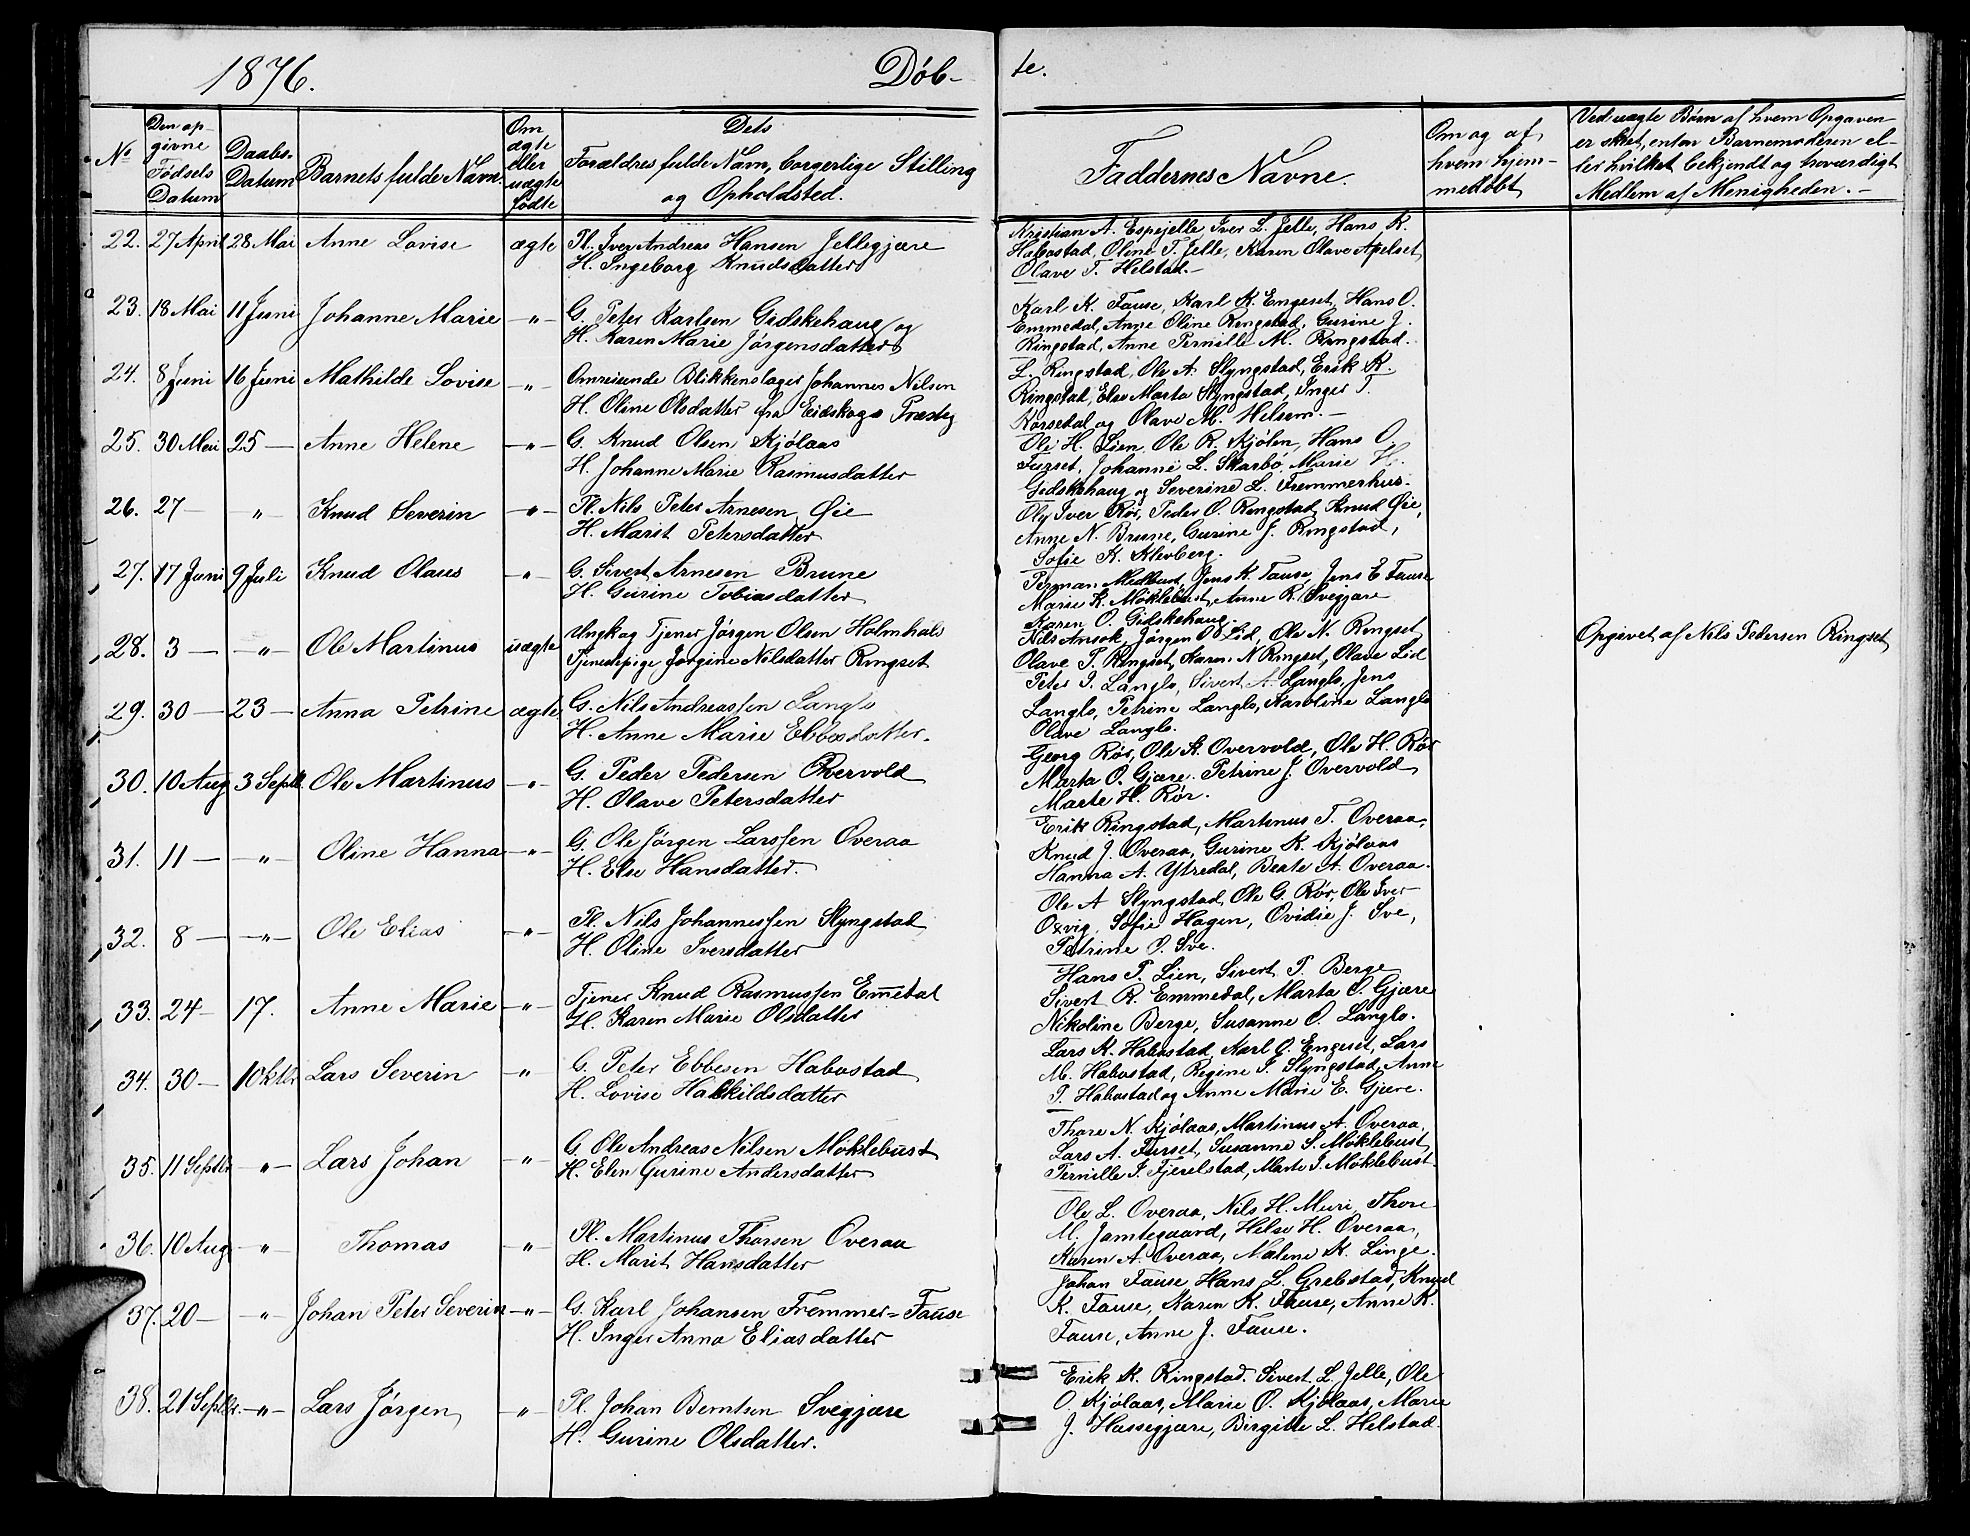 1876. Döb- te.
No
Den op-
givne
Födsels
Datum
Daabs-
Datum
Barnets fulde Navn.
Om
ægte
eller
uægte
födte
Dets
Forældres fulde Navn, borgerlige Stilling
og Opholdsted.
Faddernes Navne.
Om og af
hvem hjem-
medöbt
Ved uægte Börn af hvem Opgaven
er skeet, enten Barnemoderen el-
ler hvilket bekjendt og troværdigt
Medlem af Menigheden.-
22. 27 April 28 Mai Anne Lovise ægte Pl. Iver Andreas Hansen Jellegjære
H. Ingeborg Knudsdatter
Kristian A. Espejelle, Iver L. Jelle, Hans K.
Habostad, Oline T. Jelle, Karen Olave Apelset
Olave T. Helstad.-
23. 18 Mai 11 Juni Johanne Marie -"- G. Peter Karlsen Gidskehaug og
H. Karen Marie Jørgensdatter
Karl K. Fause, Karl K. Engeset, Hans O.
Emmedal, Anne Oline Ringstad, Gurine J.
Ringstad, Anne Pernille M. Ringstad.
24. 8 Juni 16 Juni Mathilde Lovise -"- Omreisende Blikkenslager Johannes Nilsen
H. Oline Olsdatter fra Eidskogs Præstg
L. Ringstad, Ole A. Slyngstad, Erik K.
Ringstad, Elen Marta Slyngstad, Inger T.
Rørsedal og Olave M. Helsem.-
25. 30 Mai 25 - Anne Helene -"- G. Knud Olsen Kjölaas
H. Johanne Marie Rasmusdatter
Ole H. Lien, Ole R. Kjölen, Hans O.
Furset, Johanne L. Skarbö, Marie H.
Gidskehaug og Severine L. Fremmerhus.
26. 27 - " Knud Severin -"- Pl. Nils Peter Arnesen Øie
H. Marit Petersdatter
Ole Iver Rör, Peder O. Ringstad, Knud Øie,
Anne N. Brune, Gurine J. Ringstad,
Sofie K. Klevberg.
27. 17 Juni 9 Juli Knud Olaus -"- G. Sivert Arnesen Brune
H. Gurine Tobiasdatter
Perman Melbust, Jens K. Fause, Jens E Fause
Marie K. Möklebust, Anne R. Svegjære
Karen O. Gidskehaug.
28. 3 - -"- Ole Martinus uægte Ungkag Tjener Jørgen Olsen Holmhals
Tjenestpige Jørgine Nilsdatter Ringset
Nils Ansok, Jørgen O Lid, Ole N. Ringset
Olave P. Ringset, Karen N Ringset, Olave Lid
Opgivet af Nils Pedersen Ringset
29. 30 - 23 - Anna Petrine ægte G. Nils Andreassen Langlo
H. Anne Marie Ebbesdatter.
Peter P. Langlo, Sivert A. Langlo, Jens
Langlo, Petrine Langlo, Karoline Langlo
Olave Langlo.
30. 10 Aug 3 Septb. Ole Martinus -"- G. Peder Pedersen Overvold
H. Olave Petersdatter
Georg Rör, Ole K. Overvold, Ole H. Rör
Marta O. Gjære. Petrine J. Overvold
Marte H. Rör.
31. 11 - -"- Oline Hanna -"- G. Ole Jörgen Larssen Overaa
H. Else Hansdatter.
Erik Ringstad, Martinus T. Overaa,
Knud J. Overaa, Gurine K. Kjölaas
Hanna A. Ytredal, Beate A. Overaa.
32. 8 - -"- Ole Elias -"- Pl. Nils Johannessen Slyngstad
H. Oline Iversdatter
Ole A Slyngstad, Ole G. Rör, Ole Iver
Oxvig, Sofie Hagen, Ovidie J. Sve,
Petrine O. Sve.
33. 24 - 17. Anne Marie -"- Tjener Knud Rasmussen Em̄edal
H. Karen Marie Olsdatter
Hans P. Lien, Sivert P. Berge
Sivert R. Emmedal, Marta O. Gjære
Nikoline Berge, Susanne O. Langlo.
34. 30 - 1 Oktbr Lars Severin -"- G. Peter Ebbesen Habostad
H. Lovise Halkildsdatter
Lars K. Habostad, Karl O. Engeset, Lars
M. Habostad, Regine S. Slyngstad, Anne
P. Habostad og Anne Marie E. Gjære.
35. 11 Septbr -"- Lars Johan -"- G. Ole Andreas Nilsen Möklebust
H. Elen Gurine Andersdatter
Thore N. Kjölaas, Martinus A. Overaa,
Lars A. Furset, Susanne S. Möklebust,
Pernille I. Fjærelstad, Marte I. Möklebust.
36. 10 Aug -"- Thomas -"- Pl. Martinus Thorsen Overaa
H. Marit Hansdatter
Ole L. Overaa, Nils H. Muri, Thore
M. Jamtegaard, Helse H. Overaa,
Karen A. Overaa, Malene K. Linge.
37. 20 - -"- Johan Peter Severin -"- G. Karl Johansen Fremmer-Fause
H. Inger Anna Eliasdatter
Johan Fause Hans L. Grebstad, Knud
K. Fause, Karen K. Fause, Anne K.
Fause, Anne J. Fause.
38. 21 Septbr. -"- Lars Jörgen -"- Pl. Johan Berntsen Svegjære
H. Gurine Olsdatter.
Erik K. Ringstad. Sivert L. Jelle, Ole
O. Kjölaas, Marie O. Kjölaas, Marie
J. Hassegjære, Birgitte L. Helstad.